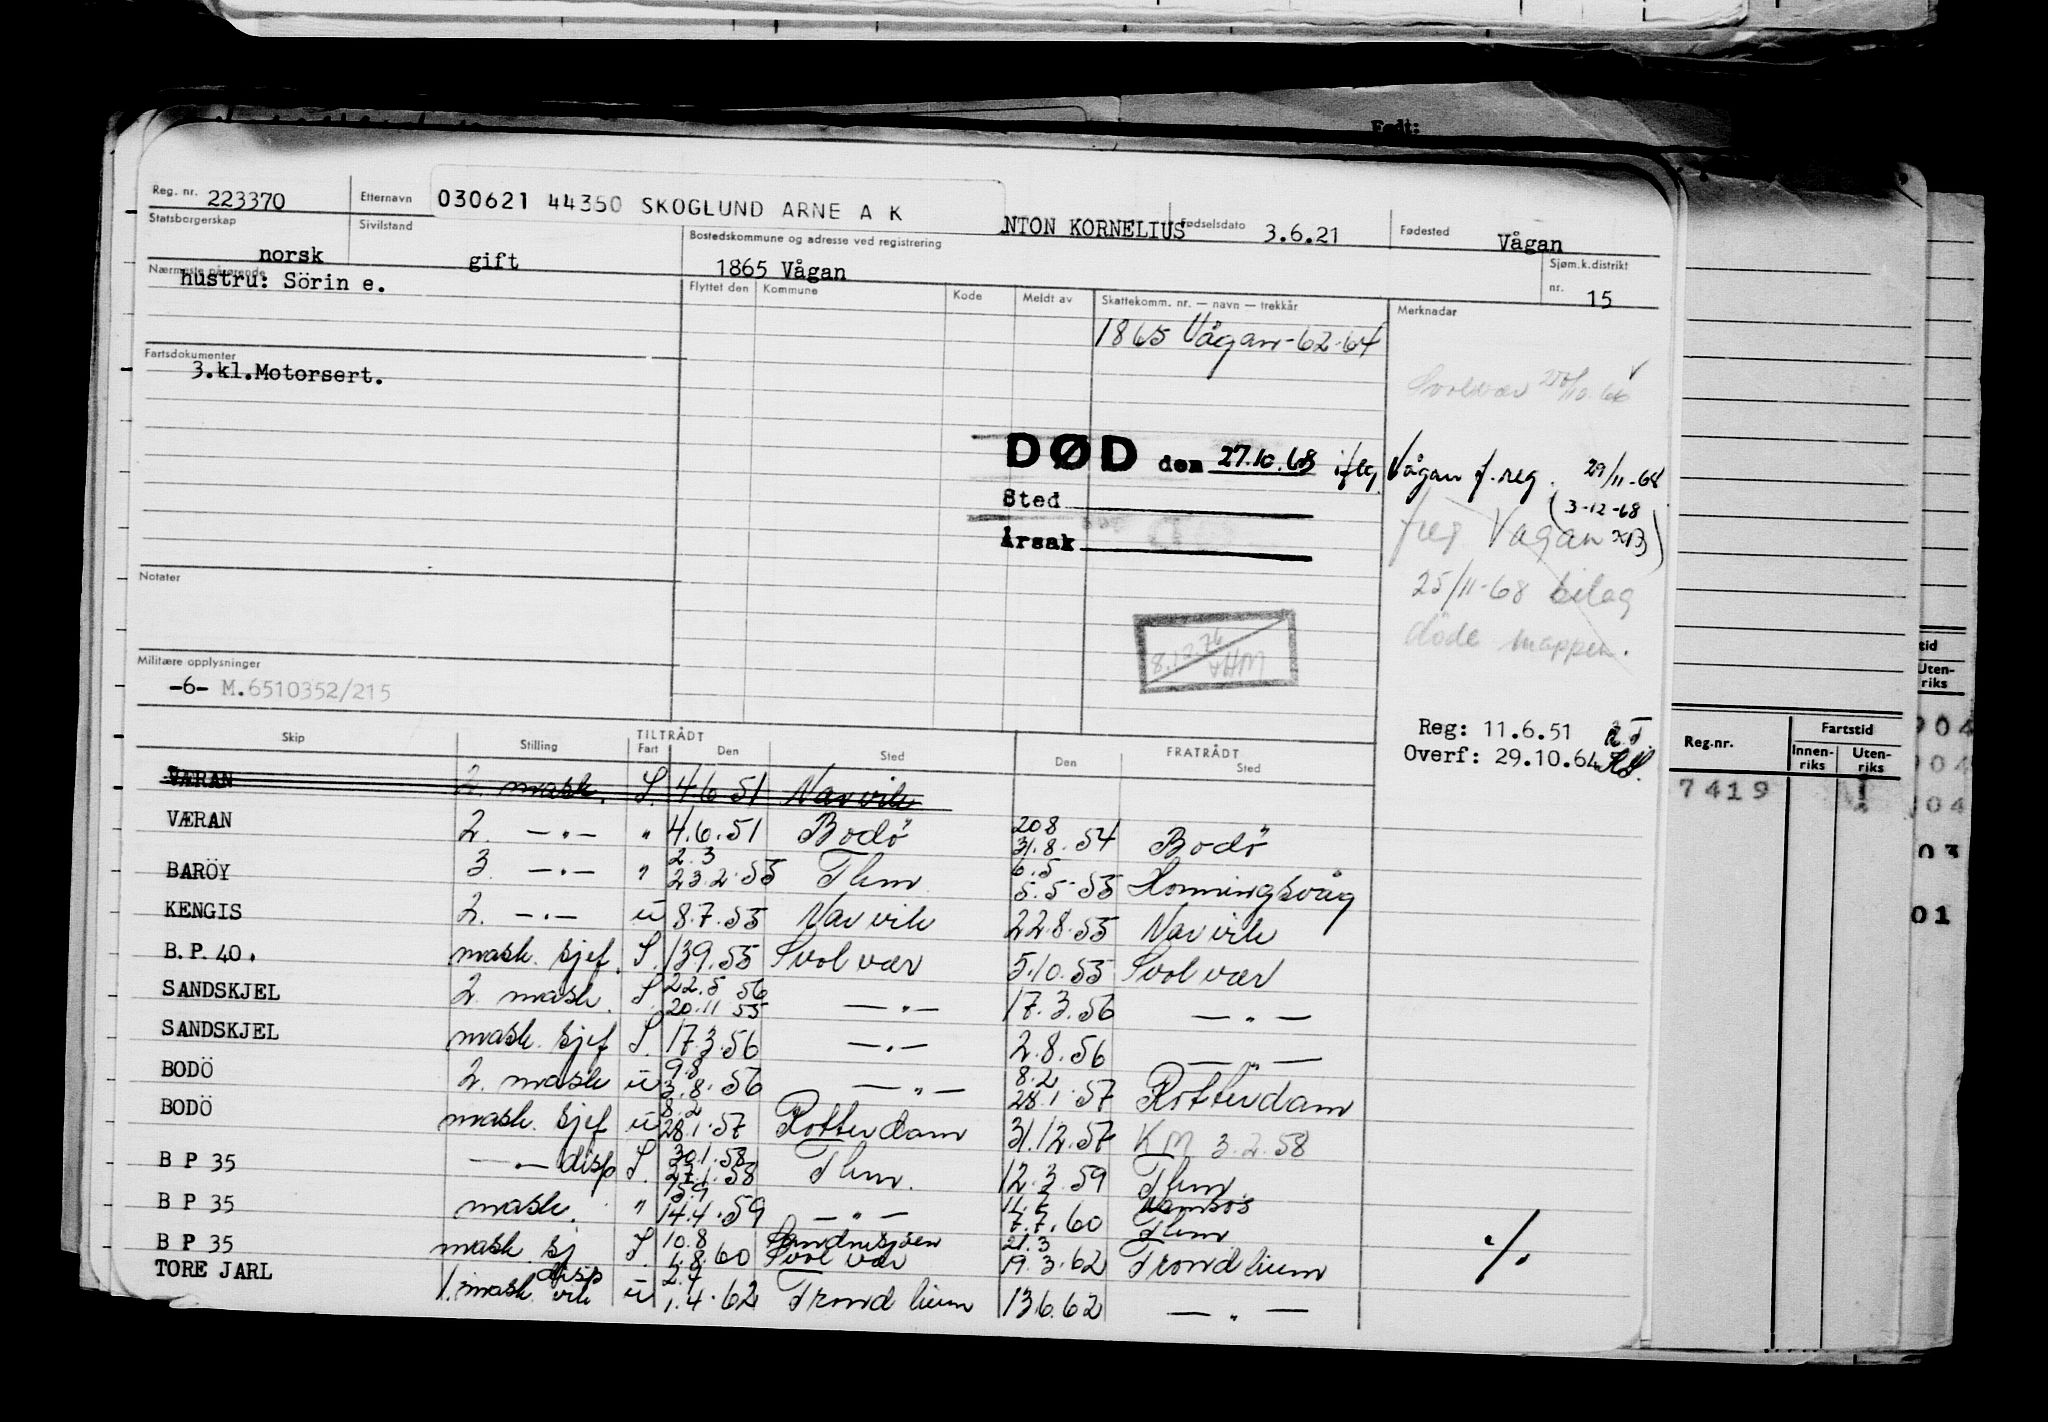 Født:
Reg. nr. 223370 Etternavn 030621 44350 SKOGLUND ARNE A K NTON KORNELIUS Fødselsdato 3.6.21 Fødested Vågan
Statsborgerskap norsk Sivilstand gift Bostedskommune og adresse ved registrering 1865 Vågan Sjøm.k.distrikt nr. 15
Nærmeste pårørende hustru: Sörin e.
Flyttet den Kommune Kode Meldt av Skattekomm. nr. — navn — trekkår Merknadar
1865 Vågan-62-64
Fartsdokumenter
3.kl.Motorsert.
Svolvær 25/10.66
DØD den 27.10.68 iflg. Vågan f.reg. 29/11-68
Sted
(3-12-68
Årsak
freg Vågan
25/11-68 bilag
døde mappen.
Notater
8.12.76
AHM
Militære opplysninger
-6- M.6510352/215
Reg: 11.6.51
Overf: 29.10.64
Skip Stilling TILTRÅDT Fart Den Sted FRATRÅDT Den Sted
VÆRAN 2. mask. S. 4.6.51 Narvik
VÆRAN 2. —"— " 4.6.51 Bodö 208 31.8.54 Bodö
BARÖY 3. —"— " 2.3 23.2.55 Thm 6.5 5.5.55 Honningsvåg
KENGIS 2. —"— u 8.7.55 Narvik 22.8.55 Narvik
B.P. 40. mask. sjef. S. 13.9.55 Svolvær 5.10.55 Svolvær
SANDSKJEL 2. mask. S. 22.5 56 20.11 55 —"— 17.3.56 —"—
SANDSKJEL mask. sjef S. 17.3.56 —"— 2.8.56 —"—
BODÖ 2. mask u 9.8 3.8.56 —"— 8.2 28.1.57 Rotterdam
BODÖ mask. sjef u 8.2 28.1.57 Rotterdam 31.12.57 KM 3.2.58
B P 35 —"— disp S. 30.1.58 27.1.58 Thm. 12.3.59 Thm
B P 35 mask. " 15.9 14.4.59 —"— 11.7 7.7.60 Namsos Thm
B P 35 mask. sj disp S. 10.8 1.8.60 Sandnessjøen Svolvær 21.3 19.3.62 Trondheim
TORE JARL 1. mask vik u 2.4 1.4.62 Trondheim 13.6.62 —"—
%
Reg.nr. Fartstid
Innenriks Utenriks
7419
tid
Utenriks
904
904
04
03
01